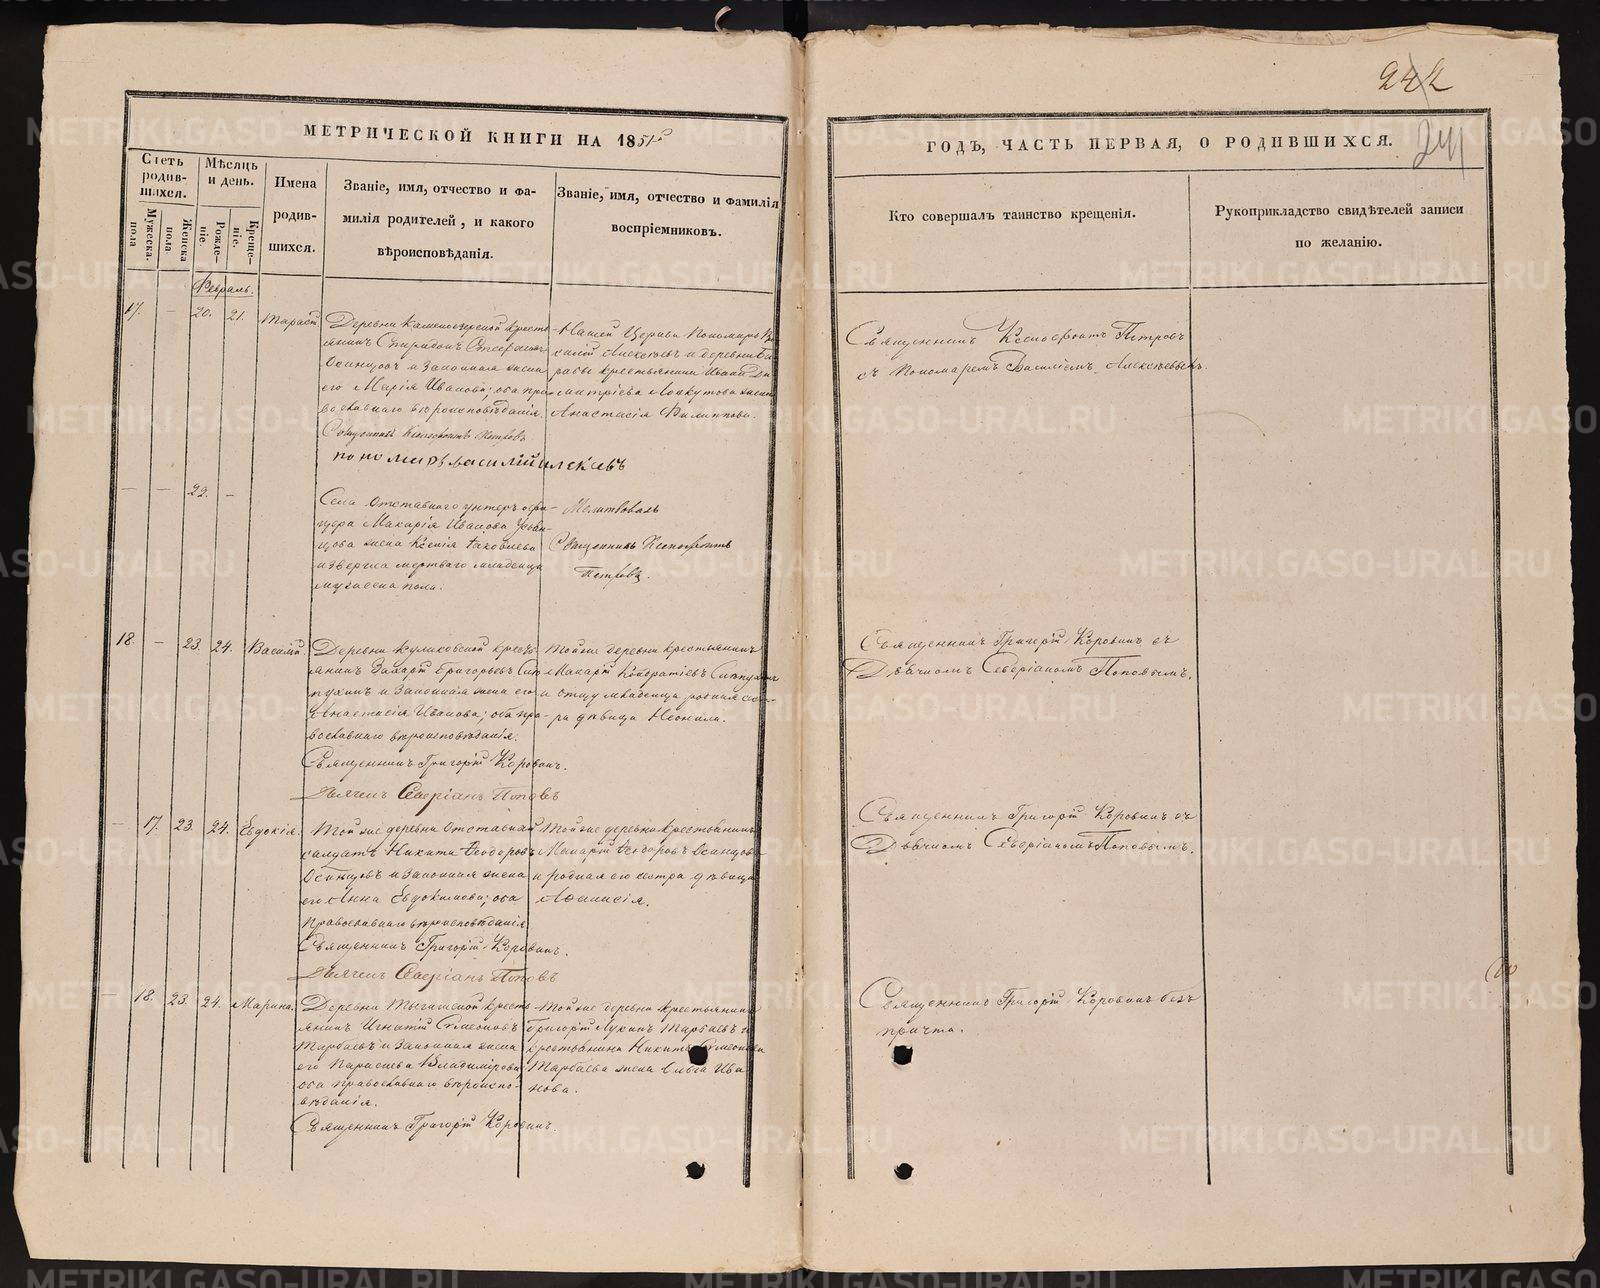 242
241
МЕТРИЧЕСКОЙ КНИГИ НА 1851й
ГОДЪ, ЧАСТЬ ПЕРВАЯ, О РОДИВШИХСЯ.
Счетъ родив-шихся.
Мужеска. пола
Женска пола
Мѣсяць и день.
Рожде-ніе.
Креще-ніе.
Имена
родив-
шихся.
Званіе, имя, отчество и фа-
милія родителей, и какого
вѣроисповѣданія.
Званіе, имя, отчество и фамилія
воспріемниковъ.
Кто совершалъ таинство крещенія.
Рукоприкладство свидѣтелей записи
по желанію.
Февраль.
17. - 20. 21. Тарасій
Деревни Каменоозерской кресть-
янинъ Спиридонъ Стефановъ
Осинцовъ и Законная жена
его Марія Иванова; оба пра-
вославнаго вѣроисповѣданія.
Священникъ Ксенофонтъ Петровъ
пономарь василій алексѣевъ
Нашей Церкви Пономарь Ва-
силій Алексѣевъ и деревни
крестьянина Ивана Ди-
митріева жена
Анастасія Филиппова.
Священникъ Ксенофонтъ Петровъ
съ Пономаремъ Василіемъ Алексѣевымъ.
- - 22. -
Села Отставнаго унтеръ офи-
цера Макарія Иванова
жена Ксенія Іаковлева
извергла мертваго младенца
мужеска пола.
Молитвовалъ
Священникъ Ксенофонтъ
Петровъ.
18. - 23. 24. Василій.
Деревни Куликовской кресть-
янинъ Захарій Григорьевъ
и Законная жена его
Анастасія Иванова; оба пра-
вославнаго вѣроисповѣданія.
Священникъ Григорій Коровинъ.
Дьячекъ Северіанъ Поповъ
Той же деревни крестьянинъ
Макарій Кондратіевъ
и отцу младенца родная сест-
ра дѣвица Неонила.
Священникъ Григорій Коровинъ съ
Дьячкомъ Северіаномъ Поповымъ.
- 17. 23. 24. Евдокія.
Той же деревни Отставный
салдатъ Никита Ѳеодоровъ
Осинцовъ и Законная жена
его Анна Евдокимова; оба
Православнаго вѣроисповѣданія
Священникъ Григорій Коровинъ.
Дьячекъ Северіанъ Поповъ
Той же деревни крестьянинъ
Макарій Ѳеодоровъ Осинцовъ
и родная его сестра дѣвица
Аѳанасія.
Священникъ Григорій Коровинъ съ
Дьячкомъ Северіаномъ Поповымъ.
- 18. 23. 24. Марина.
Деревни Тыгишской кресть-
янинъ Игнатій Симеоновъ
Тарбаевъ и Законная жена
его Параскева Владимірова;
оба православнаго вѣроиспо-
вѣданія.
Священникъ Григорій Коровинъ.
Той же деревни крестьянинъ
Григорій Лукинъ Тарбаевъ и
крестьянина Никиты Симеонова
Тарбаева жена Ольга Ива-
нова.
Священникъ Григорій Коровинъ безъ
причта.
METRIKI.GASO-URAL.RU